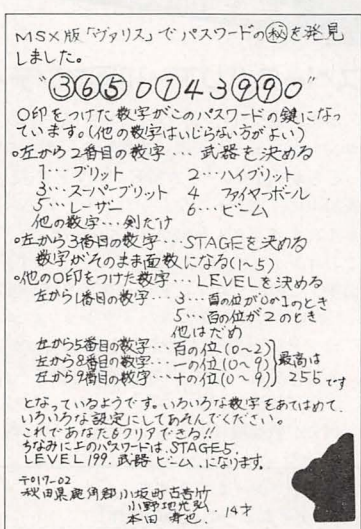 MSX版「ヴァリス」でパスワードの㊙を発見
しました。
"③⑥⑤0①43⑨⑨0"
○印をつけた数字がこのパスワードの鍵になっ
ています。(他の数字はいじらない方がよい)
○左から2番目の数字…武器を決める
1…ブリット 2…ハイブリット
3…スーパーブリット 4 ファイヤーボール
5…レーザー 6…ビーム
他の数字…剣だけ
○左から3番目の数字…STAGEを決める
数字がそのまま面数になる(1~5)
○他の○印をつけた数字…LEVELを決める
左から1番目の数字…3…百の位が0か1のとき
5…百の位が2のとき
他はだめ
左から5番目の数字…百の位(0~2)
左から8番目の数字…一の位(0~9)
左から9番目の数字…十の位(0~9)
最高は
255です
となっているようです。いろいろな数字をあてはめて、
いろいろな設定にしてあそんでください。
これであなたもクリアできる!!
ちなみに上のパスワードは、STAGE5.
LEVEL199. 武器ビーム.になります。
〒017-02
秋田県鹿角郡小坂町古苦竹
小野地 14才
本田